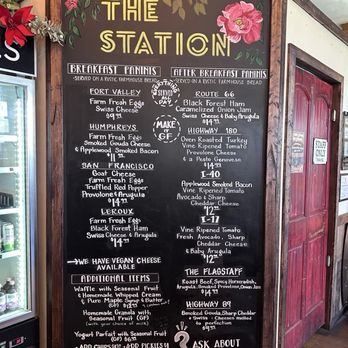 THE
STATION
BREAKFAST PANINIS
-SERVED ON A RUSTIC FARMHOUSE BREAD-
FORT VALLEY
Farm Fresh Eggs
Swiss Cheese
$9.99
HUMPHREYS
Farm Fresh Eggs
Smoked Gouda Cheese
& Applewood Smoked Bacon
$11.99
SAN FRANCISCO
Goat Cheese
Farm Fresh Eggs
Truffled Red Pepper
Provolone & Arugula
$14.99
LEROUX
Farm Fresh Eggs
Black Forest Ham
Swiss Cheese & Arugula
$14.99
WE HAVE VEGAN CHEESE
AVAILABLE
ADDITIONAL ITEMS
Waffle with Seasonal Fruit
& Homemade Whipped Cream
& Pure Maple Syrup & Butter
Homemade Granola with
Seasonal Fruit (GF)
(with your choice of milk)
Yogurt Parfait with Seasonal
Fruit (GF)
+ ADD PICKLES
SERVED
ALL
DAY
MAKE
IT
GF
AFTER BREAKFAST PANINIS
-SERVED ON A RUSTIC FARMHOUSE BREAD-
ROUTE 66
Black Forest Ham
Caramelized Onion Jam
Swiss Cheese & Baby Arugula
$14.99
HIGHWAY 180
Oven Roasted Turkey
Vine Ripened Tomato
Provolone Cheese
& Pesto Genovese
$14.99
I-40
Applewood Smoked Bacon
Vine Ripened Tomato
Avocado & Sharp
Cheddar Cheese
$12.99
I-17
Vine Ripened Tomato
Fresh Avocado, Sharp
Cheddar Cheese
& Baby Arugula
$12.99
THE FLAGSTAFF
Roast Beef, Spicy Horseradish,
Arugula, Smoked Provolone, Onion Jam
$14.99
HIGHWAY 89
Smoked Gouda, Sharp Cheddar
& Swiss Cheeses melted
to perfection
$9.99
? ASK ABOUT
STAFF